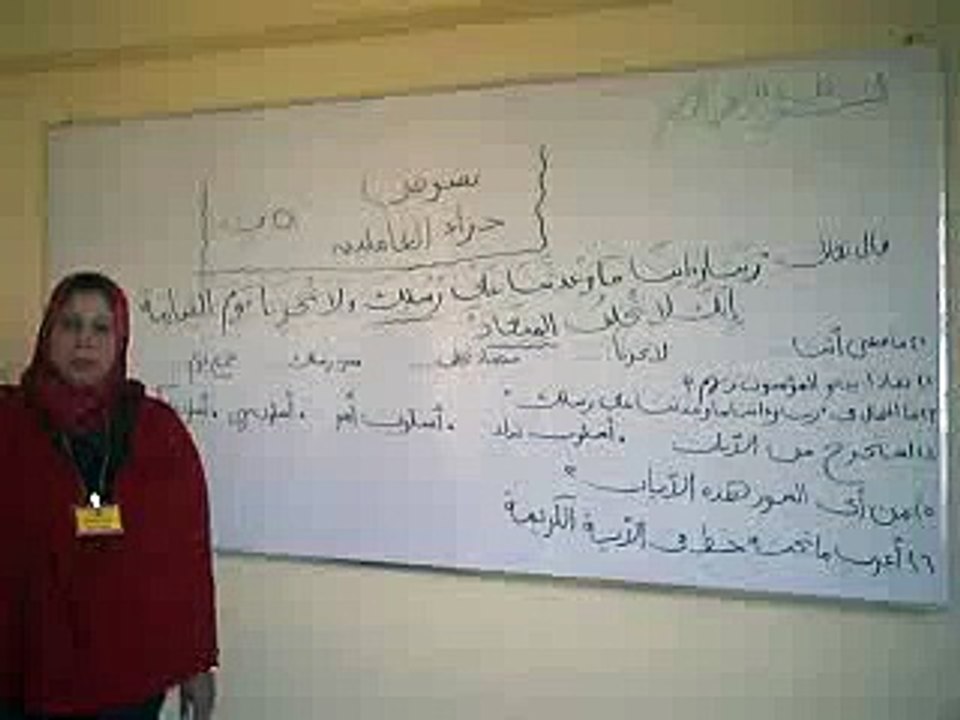 نصوص
جزاء العاملين
قال تعالى "ربنا وءاتنا ما وعدتنا على رسلك ولا تخزنا يوم القيامة
إنك لا تخلف الميعاد"
١) ما معنى آتنا ... لا تخزنا ...
٢) بماذا يدعو المؤمنون ربهم ؟
٣) ما الجمال فى "ربنا وءاتنا ما وعدتنا على رسلك"
٤) استخرج من الآيات . أسلوب نداء . أسلوب أمر . أسلوب نهى
٥) من أى السور هذه الآيات ؟
٦) أعرب ما تحته خط فى الآية الكريمة